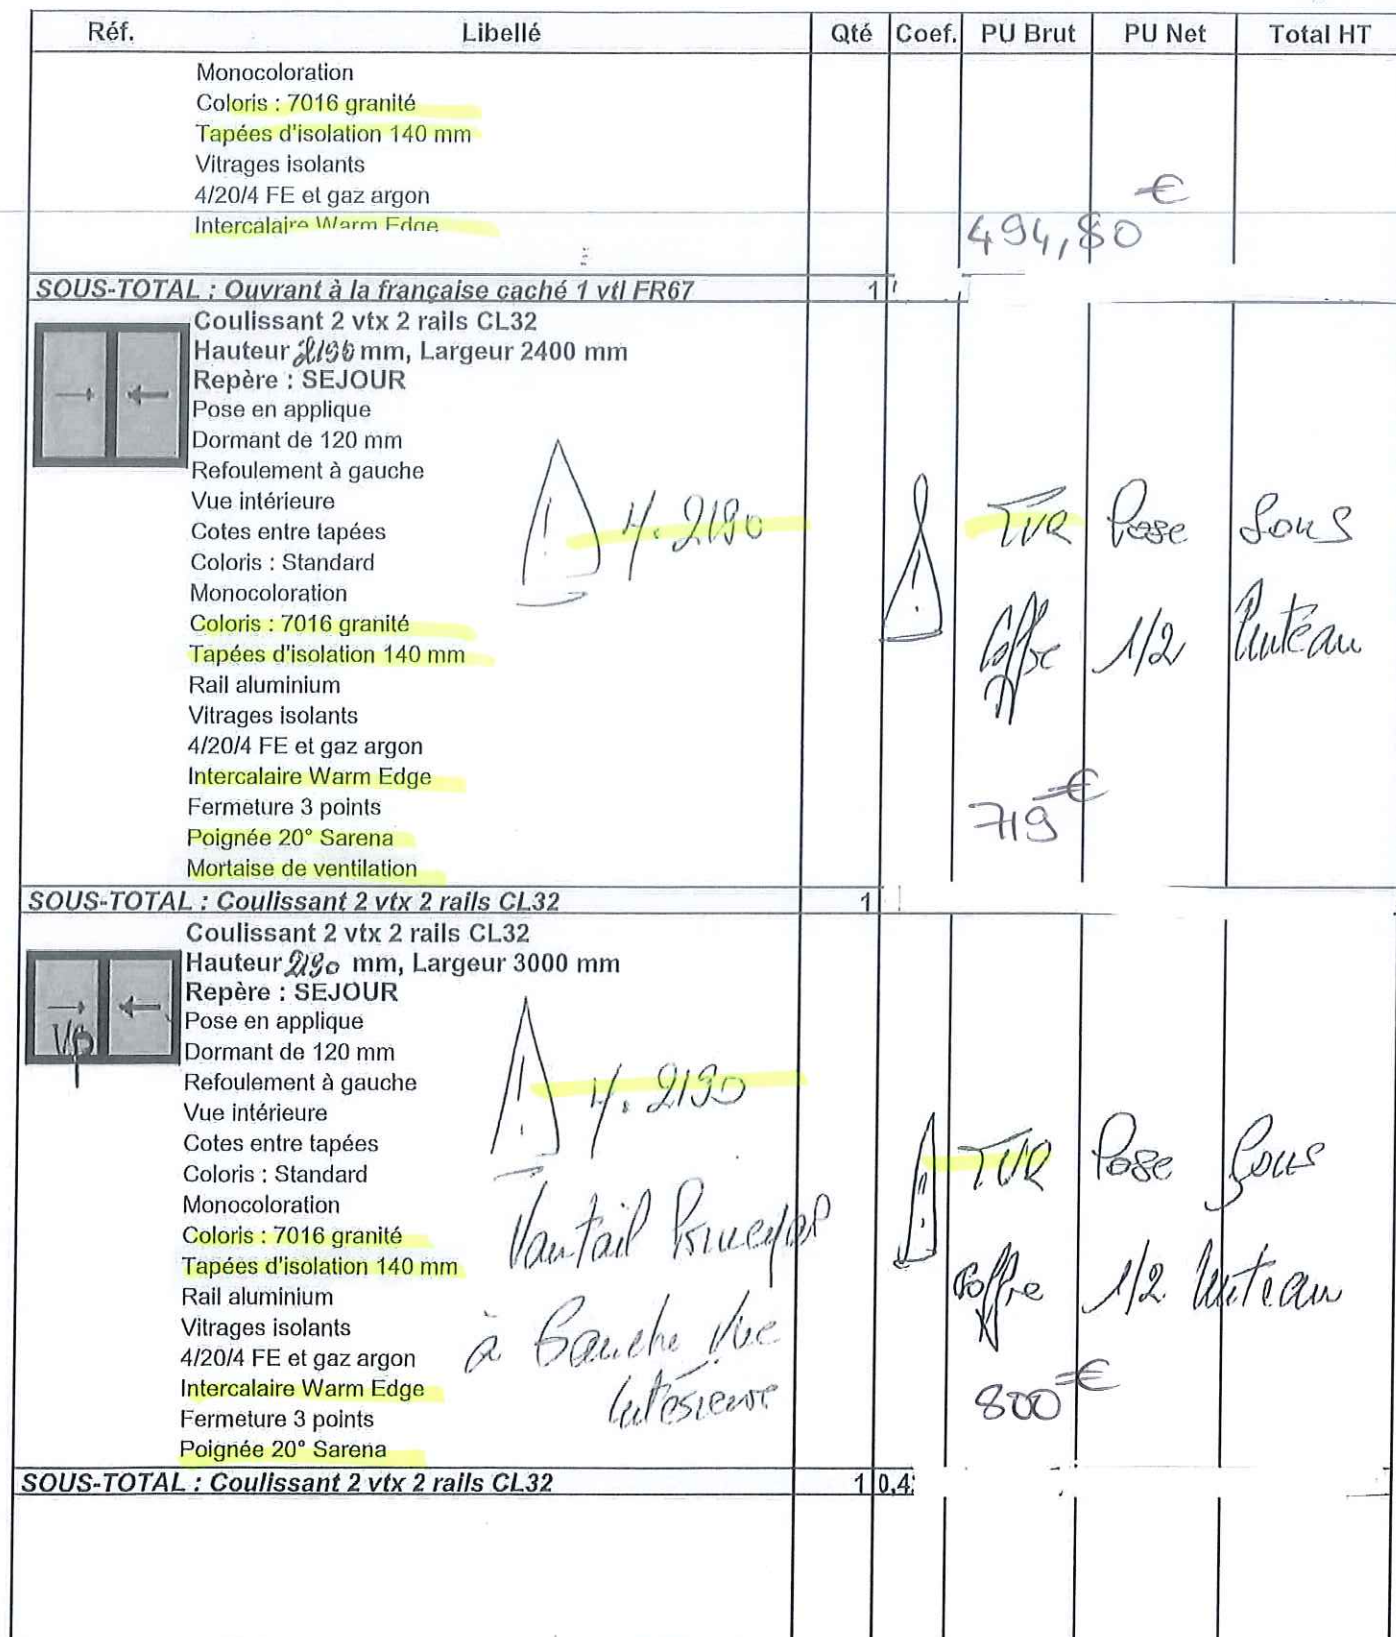 Réf. Libellé Qté Coef. PU Brut PU Net Total HT
Monocoloration
Coloris : 7016 granité
Tapées d'isolation 140 mm
Vitrages isolants
4/20/4 FE et gaz argon
Intercalaire Warm Edge
494,80 €
SOUS-TOTAL : Ouvrant à la française caché 1 vtl FR67 1
Coulissant 2 vtx 2 rails CL32
Hauteur 2190 mm, Largeur 2400 mm
Repère : SEJOUR
Pose en applique
Dormant de 120 mm
Refoulement à gauche
Vue intérieure
Cotes entre tapées
Coloris : Standard
Monocoloration
Coloris : 7016 granité
Tapées d'isolation 140 mm
Rail aluminium
Vitrages isolants
4/20/4 FE et gaz argon
Intercalaire Warm Edge
Fermeture 3 points
Poignée 20° Sarena
Mortaise de ventilation
! H. 2190
! TVR Pose Sous
Coffre 1/2 linteau
719 €
SOUS-TOTAL : Coulissant 2 vtx 2 rails CL32 1
Coulissant 2 vtx 2 rails CL32
Hauteur 2190 mm, Largeur 3000 mm
Repère : SEJOUR
VP
Pose en applique
Dormant de 120 mm
Refoulement à gauche
Vue intérieure
Cotes entre tapées
Coloris : Standard
Monocoloration
Coloris : 7016 granité
Tapées d'isolation 140 mm
Rail aluminium
Vitrages isolants
4/20/4 FE et gaz argon
Intercalaire Warm Edge
Fermeture 3 points
Poignée 20° Sarena
! H. 2190
Vantail Principal
à Gauche Vue
intérieure
! TVR Pose Sous
Coffre 1/2 linteau
800 €
SOUS-TOTAL : Coulissant 2 vtx 2 rails CL32 1 0,4